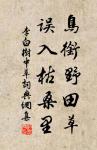 鳥銜野田草
誤入枯桑里
李白樹中草詞典網集